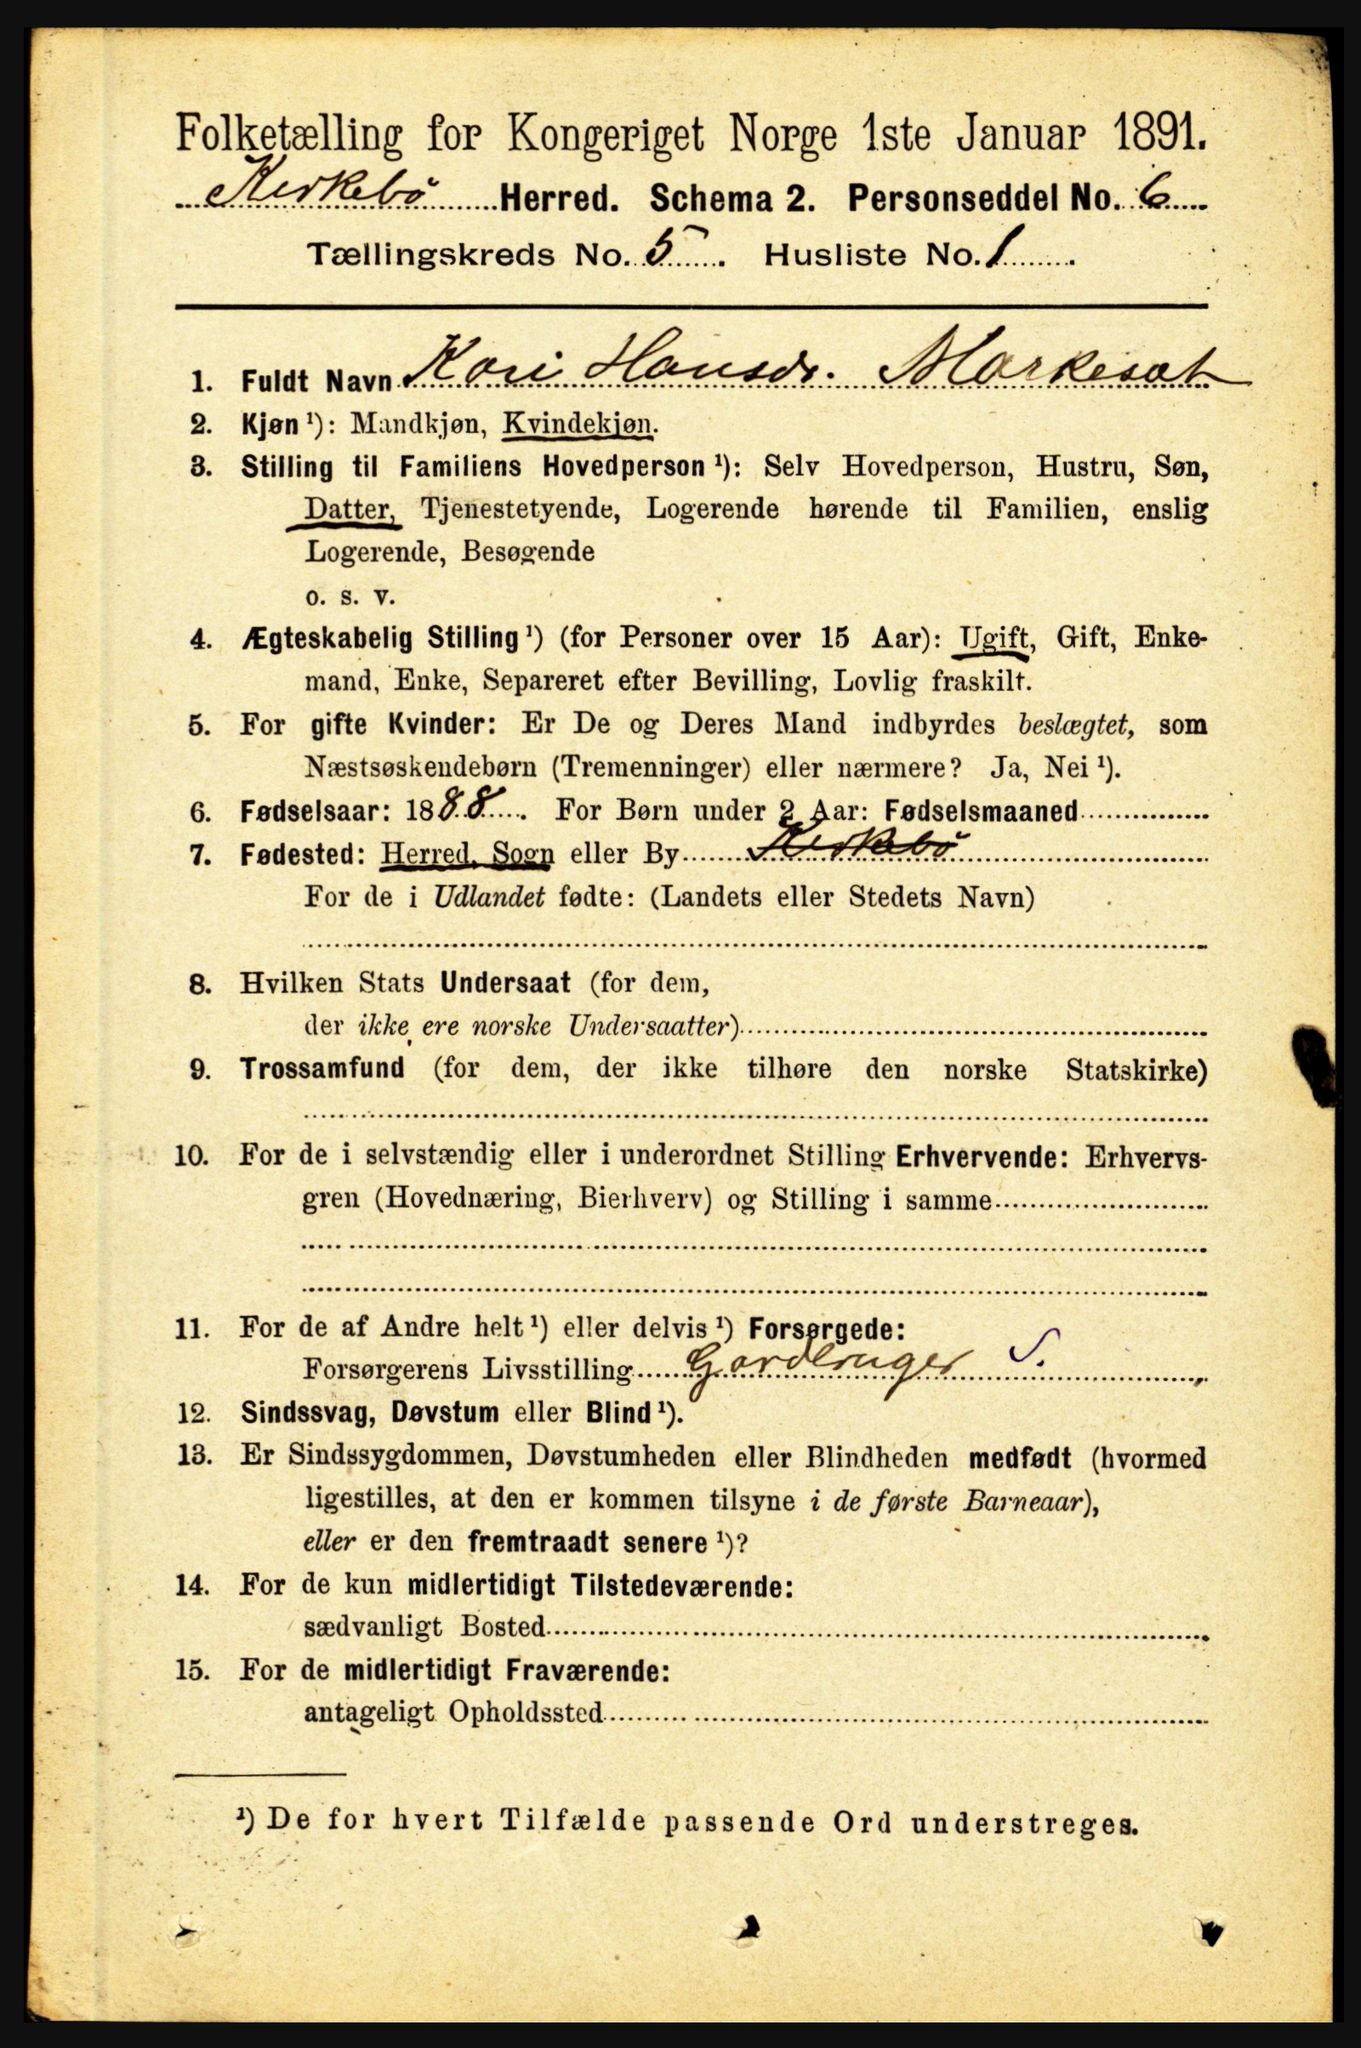 Folketælling for Kongeriget Norge 1ste Januar 1891.
Kirkebø Herred. Schema 2. Personseddel No. 6
Tællingskreds No. 5. Husliste No. 1.
1. Fuldt Navn Kari Hansdr. Markesæt
2. Kjøn ¹): Mandkjøn, Kvindekjøn.
3. Stilling til Familiens Hovedperson ¹): Selv Hovedperson, Hustru, Søn,
Datter, Tjenestetyende, Logerende hørende til Familien, enslig
Logerende, Besøgende
o. s. v.
4. Ægteskabelig Stilling ¹) (for Personer over 15 Aar): Ugift, Gift, Enke-
mand, Enke, Separeret efter Bevilling, Lovlig fraskilt.
5. For gifte Kvinder: Er De og Deres Mand indbyrdes beslægtet, som
Næstsøskendebørn (Tremenninger) eller nærmere? Ja, Nei ¹).
6. Fødselsaar: 1888. For Børn under 2 Aar: Fødselsmaaned
7. Fødested: Herred, Sogn eller By Kirkebø
For de i Udlandet fødte: (Landets eller Stedets Navn)
8. Hvilken Stats Undersaat (for dem,
der ikke ere norske Undersaatter)
9. Trossamfund (for dem, der ikke tilhøre den norske Statskirke)
10. For de i selvstændig eller i underordnet Stilling Erhvervende: Erhvervs-
gren (Hovednæring, Bierhverv) og Stilling i samme
11. For de af Andre helt ¹) eller delvis ¹) Forsørgede:
Forsørgerens Livsstilling Gardbruger S.
12. Sindssvag, Døvstum eller Blind ¹).
13. Er Sindssygdommen, Døvstumheden eller Blindheden medfødt (hvormed
ligestilles, at den er kommen tilsyne i de første Barneaar),
eller er den fremtraadt senere ¹)?
14. For de kun midlertidigt Tilstedeværende:
sædvanligt Bosted
15. For de midlertidigt Fraværende:
antageligt Opholdssted
¹) De for hvert Tilfælde passende Ord understreges.